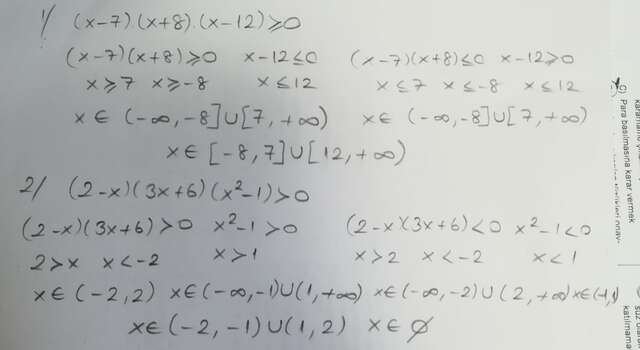 1/ (x-7).(x+8).(x-12)⩾0
(x-7)(x+8)⩾0 x-12≤0 (x-7)(x+8)≤0 x-12⩾0
x⩾7 x⩾-8 x≤12 x≤7 x≤-8 x≤12
x∈(-∞,-8]∪[7,+∞) x∈(-∞,-8]∪[7,+∞)
x∈[-8,7]∪[12,+∞)
2/ (2-x)(3x+6)(x²-1)>0
(2-x)(3x+6)>0 x²-1>0 (2-x)(3x+6)<0 x²-1<0
2>x x<-2 x>1 x>2 x<-2 x<1
x∈(-2,2) x∈(-∞,-1)∪(1,+∞) x∈(-∞,-2)∪(2,+∞) x∈(-1,1)
x∈(-2,-1)∪(1,2) x∈∅
G) Para basılmasına karar vermek